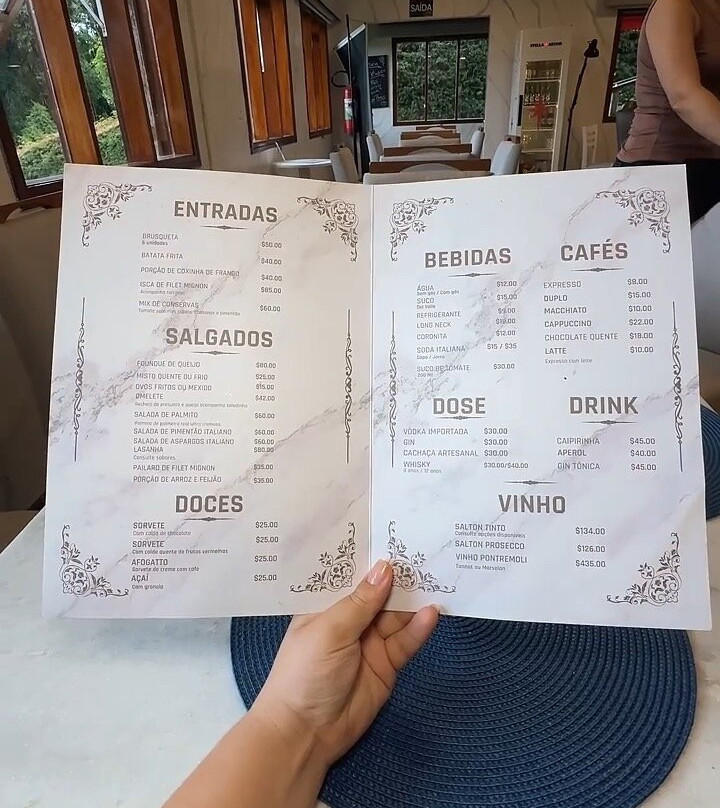 SAÍDA
STELLA ARTOIS
ENTRADAS
BRUSQUETA $50.00
6 unidades
BATATA FRITA $40.00
PORÇÃO DE COXINHA DE FRANGO $40.00
ISCA DE FILET MIGNON $85.00
Acompanha
MIX DE CONSERVAS $60.00
SALGADOS
FOUNDUE DE QUEIJO $80.00
MISTO QUENTE OU FRIO $25.00
OVOS FRITOS OU MEXIDO $15.00
OMELETE $42.00
Recheio de presunto e queijo acompanha saladinha
SALADA DE PALMITO $60.00
Palmito de palmeira real ultra cremoso
SALADA DE PIMENTÃO ITALIANO $60.00
SALADA DE ASPARGOS ITALIANO $60.00
LASANHA $80.00
Consulte sabores
PAILARD DE FILET MIGNON $35.00
PORÇÃO DE ARROZ E FEIJÃO $35.00
DOCES
SORVETE $25.00
Com calda de chocolate
SORVETE $25.00
Com calda quente de frutas vermelhas
AFOGATTO $25.00
Sorvete de creme com café
AÇAÍ $25.00
Com granola
BEBIDAS
ÁGUA $12.00
Sem gás / Com gás
SUCO $15.00
Del Valle
REFRIGERANTE $9.00
LONG NECK
CORONITA $12.00
SODA ITALIANA $15 / $35
Copo / Jarra
SUCO DE TOMATE $30.00
200 ml
CAFÉS
EXPRESSO $8.00
DUPLO $15.00
MACCHIATO $10.00
CAPPUCCINO $22.00
CHOCOLATE QUENTE $18.00
LATTE $10.00
Expresso com leite
DOSE
VODKA IMPORTADA $30.00
GIN $30.00
CACHAÇA ARTESANAL $30.00
WHISKY $30.00/$40.00
8 anos / 12 anos
DRINK
CAIPIRINHA $45.00
APEROL $40.00
GIN TÔNICA $45.00
VINHO
SALTON TINTO $134.00
Consulte opções disponíveis
SALTON PROSECCO $126.00
VINHO PONTREMOLI $435.00
Tannat ou Marselan